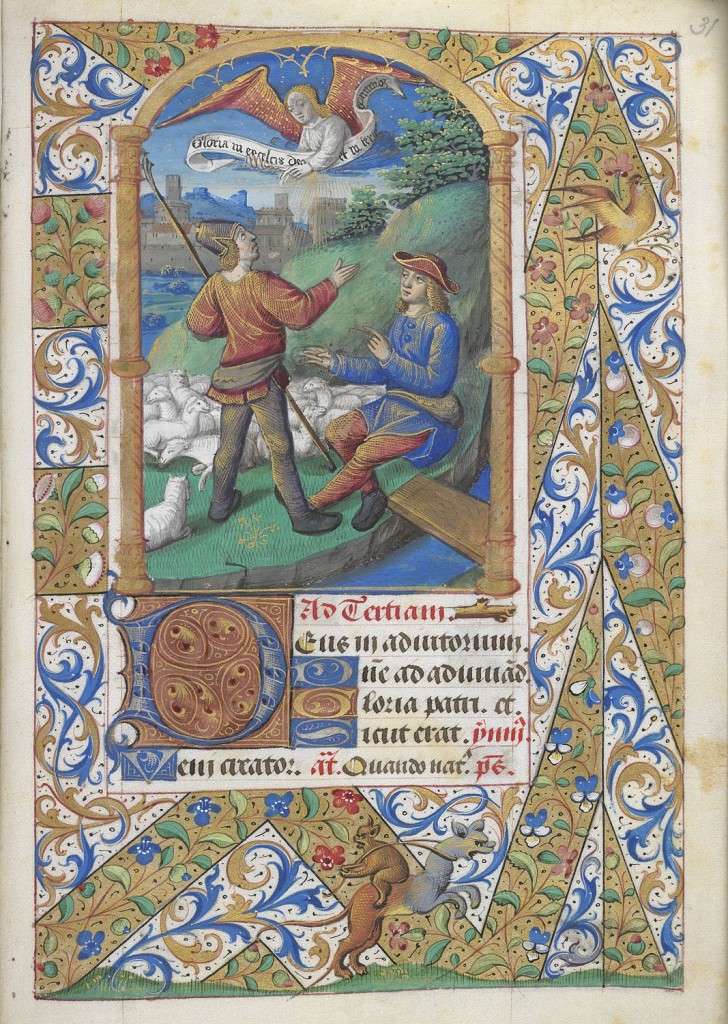 31
Gloria in excelcis deo et in terr
Ad Tertiam.
Deus in adiutorium.
Dñe ad adiuuãd.
Gloria patri. et.
Sicut erat. ymnꝰ.
Veni creator. añ. Quando nat'. pš.